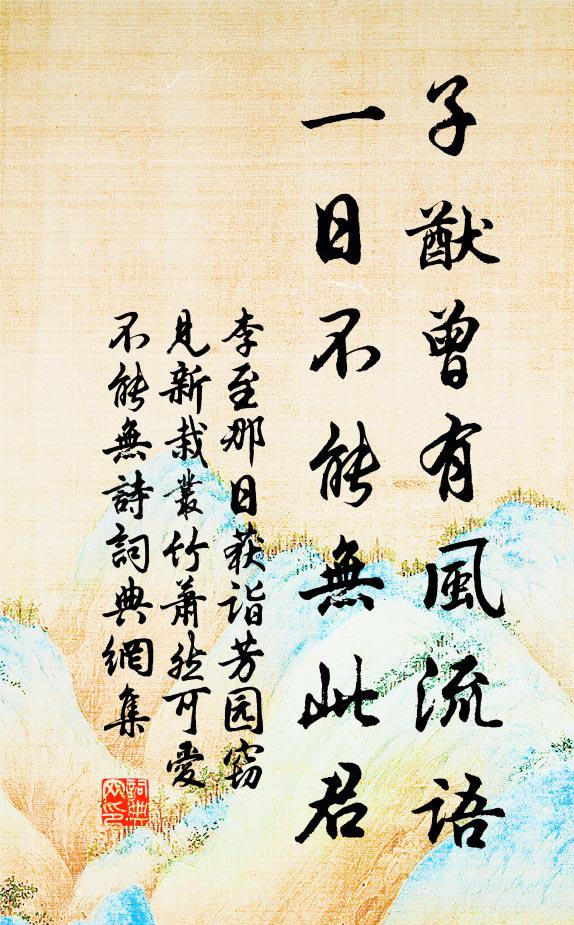 子猷曾有風流語
一日不能無此君
李至那日获詣芳园窃
見新栽叢竹蕭然可愛
不能無詩詞典網集
詞典